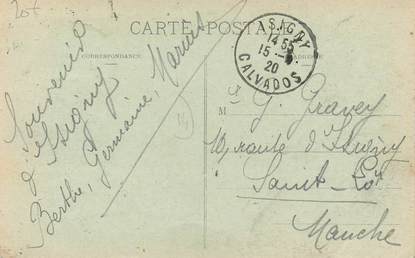 CARTE POSTALE
CORRESPONDANCE
Souvenir
d'Isigny
Berthe, Germaine, Marcel
ISIGNY
14 55
15 - 
20
CALVADOS
M
G. Gravey
10, route d'Isigny
Saint-Lô
Manche